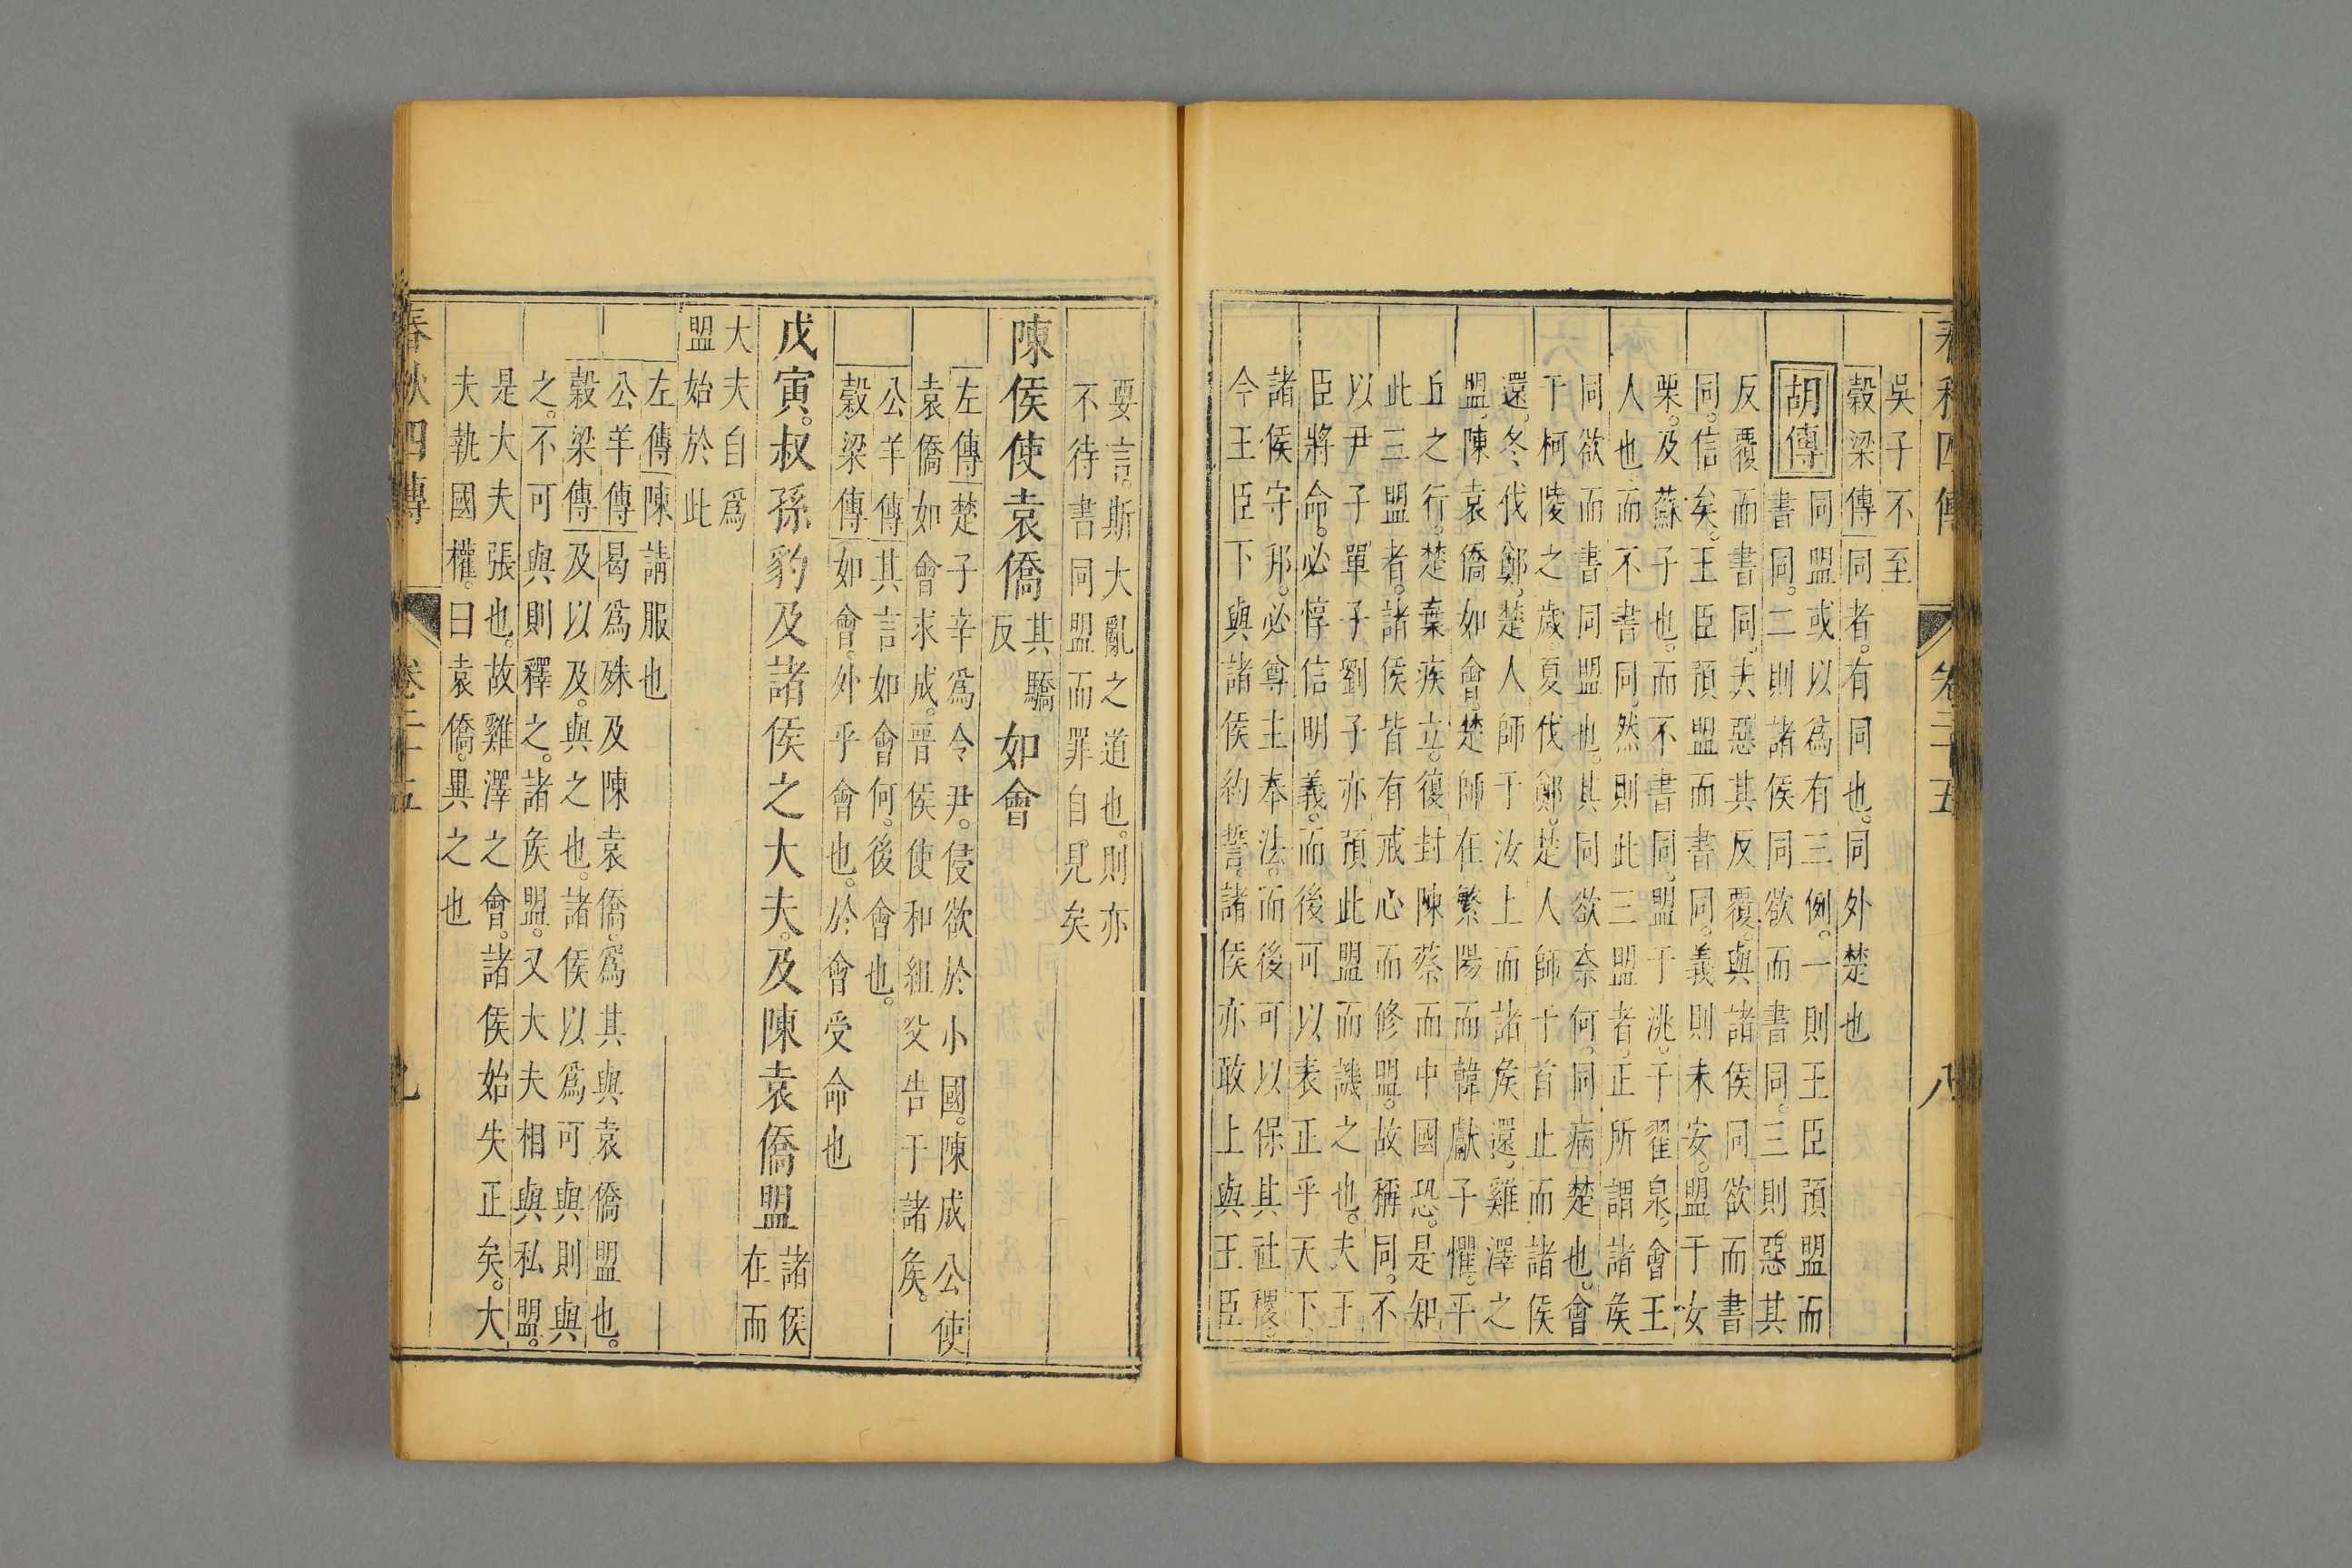 春秋四傳 卷二十五 八
吳子不至
穀梁傳同者。有同也。同外楚也
胡傳 同盟或以爲有三例。一則王臣預盟而
書同。二則諸侯同欲而書同。三則惡其
反覆而書同。夫惡其反覆。與諸侯同欲而書
同。信矣。王臣預盟而書同。義則未安。盟于女
栗。及蘇子也。而不書同。盟于洮。于翟泉。會王
人也。而不書同。然則此三盟者。正所謂諸侯
同欲而書同盟也。其同欲奈何。同病楚也。會
于柯陵之歲。夏伐鄭。楚人師于首止而諸侯
還。冬伐鄭。楚人師于汝上而諸侯還。雞澤之
盟。陳袁僑如會。楚師在繁陽而韓獻子懼。平
丘之行。楚棄疾立。復封陳蔡而中國恐。是知
此三盟者。諸侯皆有戒心而修盟。故稱同。不
以尹子單子劉子亦預此盟而譏之也。夫王
臣將命。必惇信明義。而後可以表正乎天下。
諸侯守邦。必尊主奉法。而後可以保其社稷。
今王臣下與諸侯約誓。諸侯亦敢上與王臣
要言。斯大亂之道也。則亦
不待書同盟而罪自見矣
陳侯使袁僑其驕反如會
左傳楚子辛爲令尹。侵欲於小國。陳成公使
袁僑如會求成。晉侯使和組父告于諸侯。
公羊傳其言如會何。後會也。
穀梁傳如會。外乎會也。於會受命也
戊寅。叔孫豹及諸侯之大夫。及陳袁僑盟諸侯在而
大夫自爲
盟始於此
左傳陳請服也
公羊傳曷爲殊及陳袁僑。爲其與袁僑盟也。
穀梁傳及以及。與之也。諸侯以爲可與則與
之。不可與則釋之。諸侯盟。又大夫相與私盟。
是大夫張也。故雞澤之會。諸侯始失正矣。大
夫執國權。曰袁僑。異之也
春秋四傳 卷二十五 九